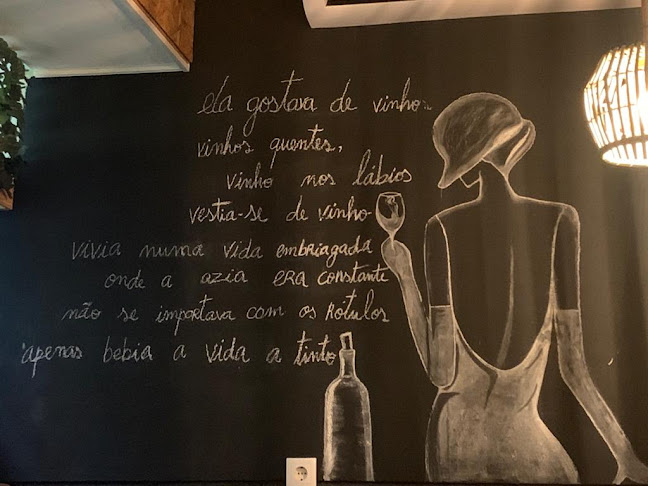 ela gostava de vinho
vinhos quentes,
vinho nos lábios
vestia-se de vinho
vivia numa vida embriagada
onde a azia era constante
não se importava com os rótulos
apenas bebia a vida a tinto